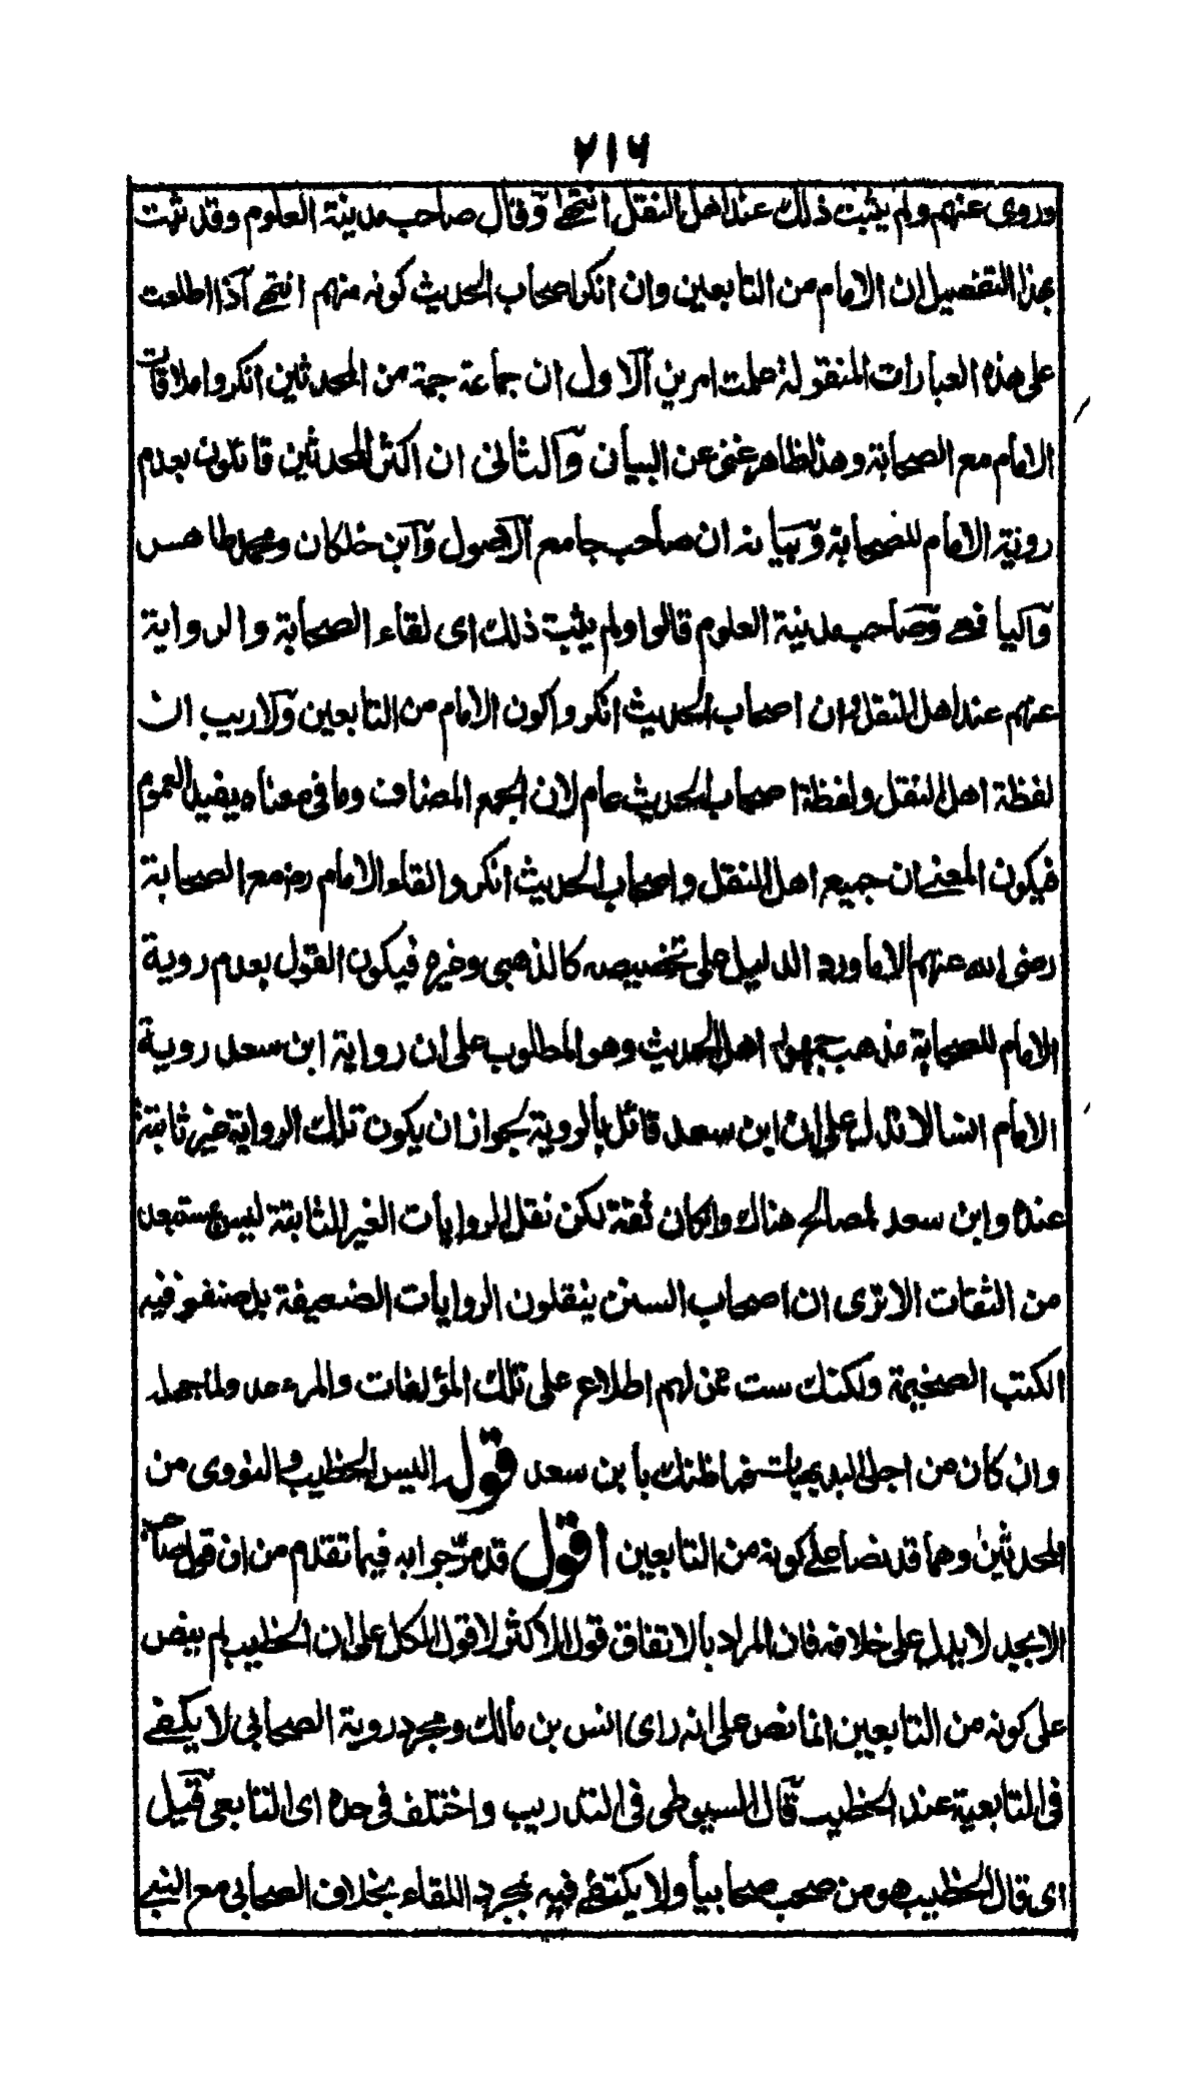 ٢١٦
وروى عنهم ولم يثبت ذلك عند اهل النقل انتهى وقال صاحب مدينة العلوم وقد ثبت
بهذا التفصيل ان الامام من التابعين وان انكر اصحاب الحديث كونه منهم انتهى اذا اطلعت
على هذه العبارات المنقولة علمت امرين الاول ان جماعة جمة من المحدثين انكروا ملاقات
الامام مع الصحابة وهذا ظاهر غنى عن البيان والثانى ان اكثر المحدثين قائلون بعدم
روئية الامام للصحابة وبيانه ان صاحب جامع الاصول وابن خلكان ومحمد طاهر
واليافعى وصاحب مدينة العلوم قالوا ولم يثبت ذلك اى لقاء الصحابة والرواية
عنهم عند اهل النقل وان اصحاب الحديث انكروا كون الامام من التابعين ولا ريب ان
لفظة اهل النقل ولفظة اصحاب الحديث عام لان الجمع المضاف وما فى معناه يفيد العموم
فيكون المعنى ان جميع اهل النقل واصحاب الحديث انكروا لقاء الامام رض مع الصحابة
رضى الله عنهم الا ما ورد الدليل على تخصيصه كالذهبى وغيره فيكون القول بعدم روية
الامام للصحابة مذهب جمهور اهل الحديث وهو المطلوب على ان رواية ابن سعد روية
الامام انسا لا تدل على ان ابن سعد قائل بالروية لجواز ان يكون تلك الرواية غير ثابتة
عنده وابن سعد لمصالح هناك وان كان ثقة لكن نقل الروايات الغير الثابتة ليس بمستبعد
من الثقات الا ترى ان اصحاب السنن ينقلون الروايات الضعيفة بل صنفوا فيه
الكتب الضخيمة ولكنك ست ممن لهم اطلاع على تلك المؤلفات والمرء عدو لما جهله
وان كان من اجلى البديهيات فما ظنك بابن سعد قوله اليس الخطيب والنووى من
المحدثين وهما قد نصا على كونه من التابعين اقول قد مر جوابه فيما تقدم من ان قول صاحب
الابجد لا يدل على خلافه فان المراد بالاتفاق قول الاكثر لا قول الكل على ان الخطيب لم ينص
على كونه من التابعين انما نص على انه راى انس بن مالك ومجرد روية الصحابى لا يكفى
فى التابعية عند الخطيب قال السيوطى فى التدريب واختلف فى حده اى التابعى قيل
اى قال الخطيب هو من صحب صحابيا ولا يكتفى فيه بمجرد اللقاء بخلاف الصحابى مع النبى